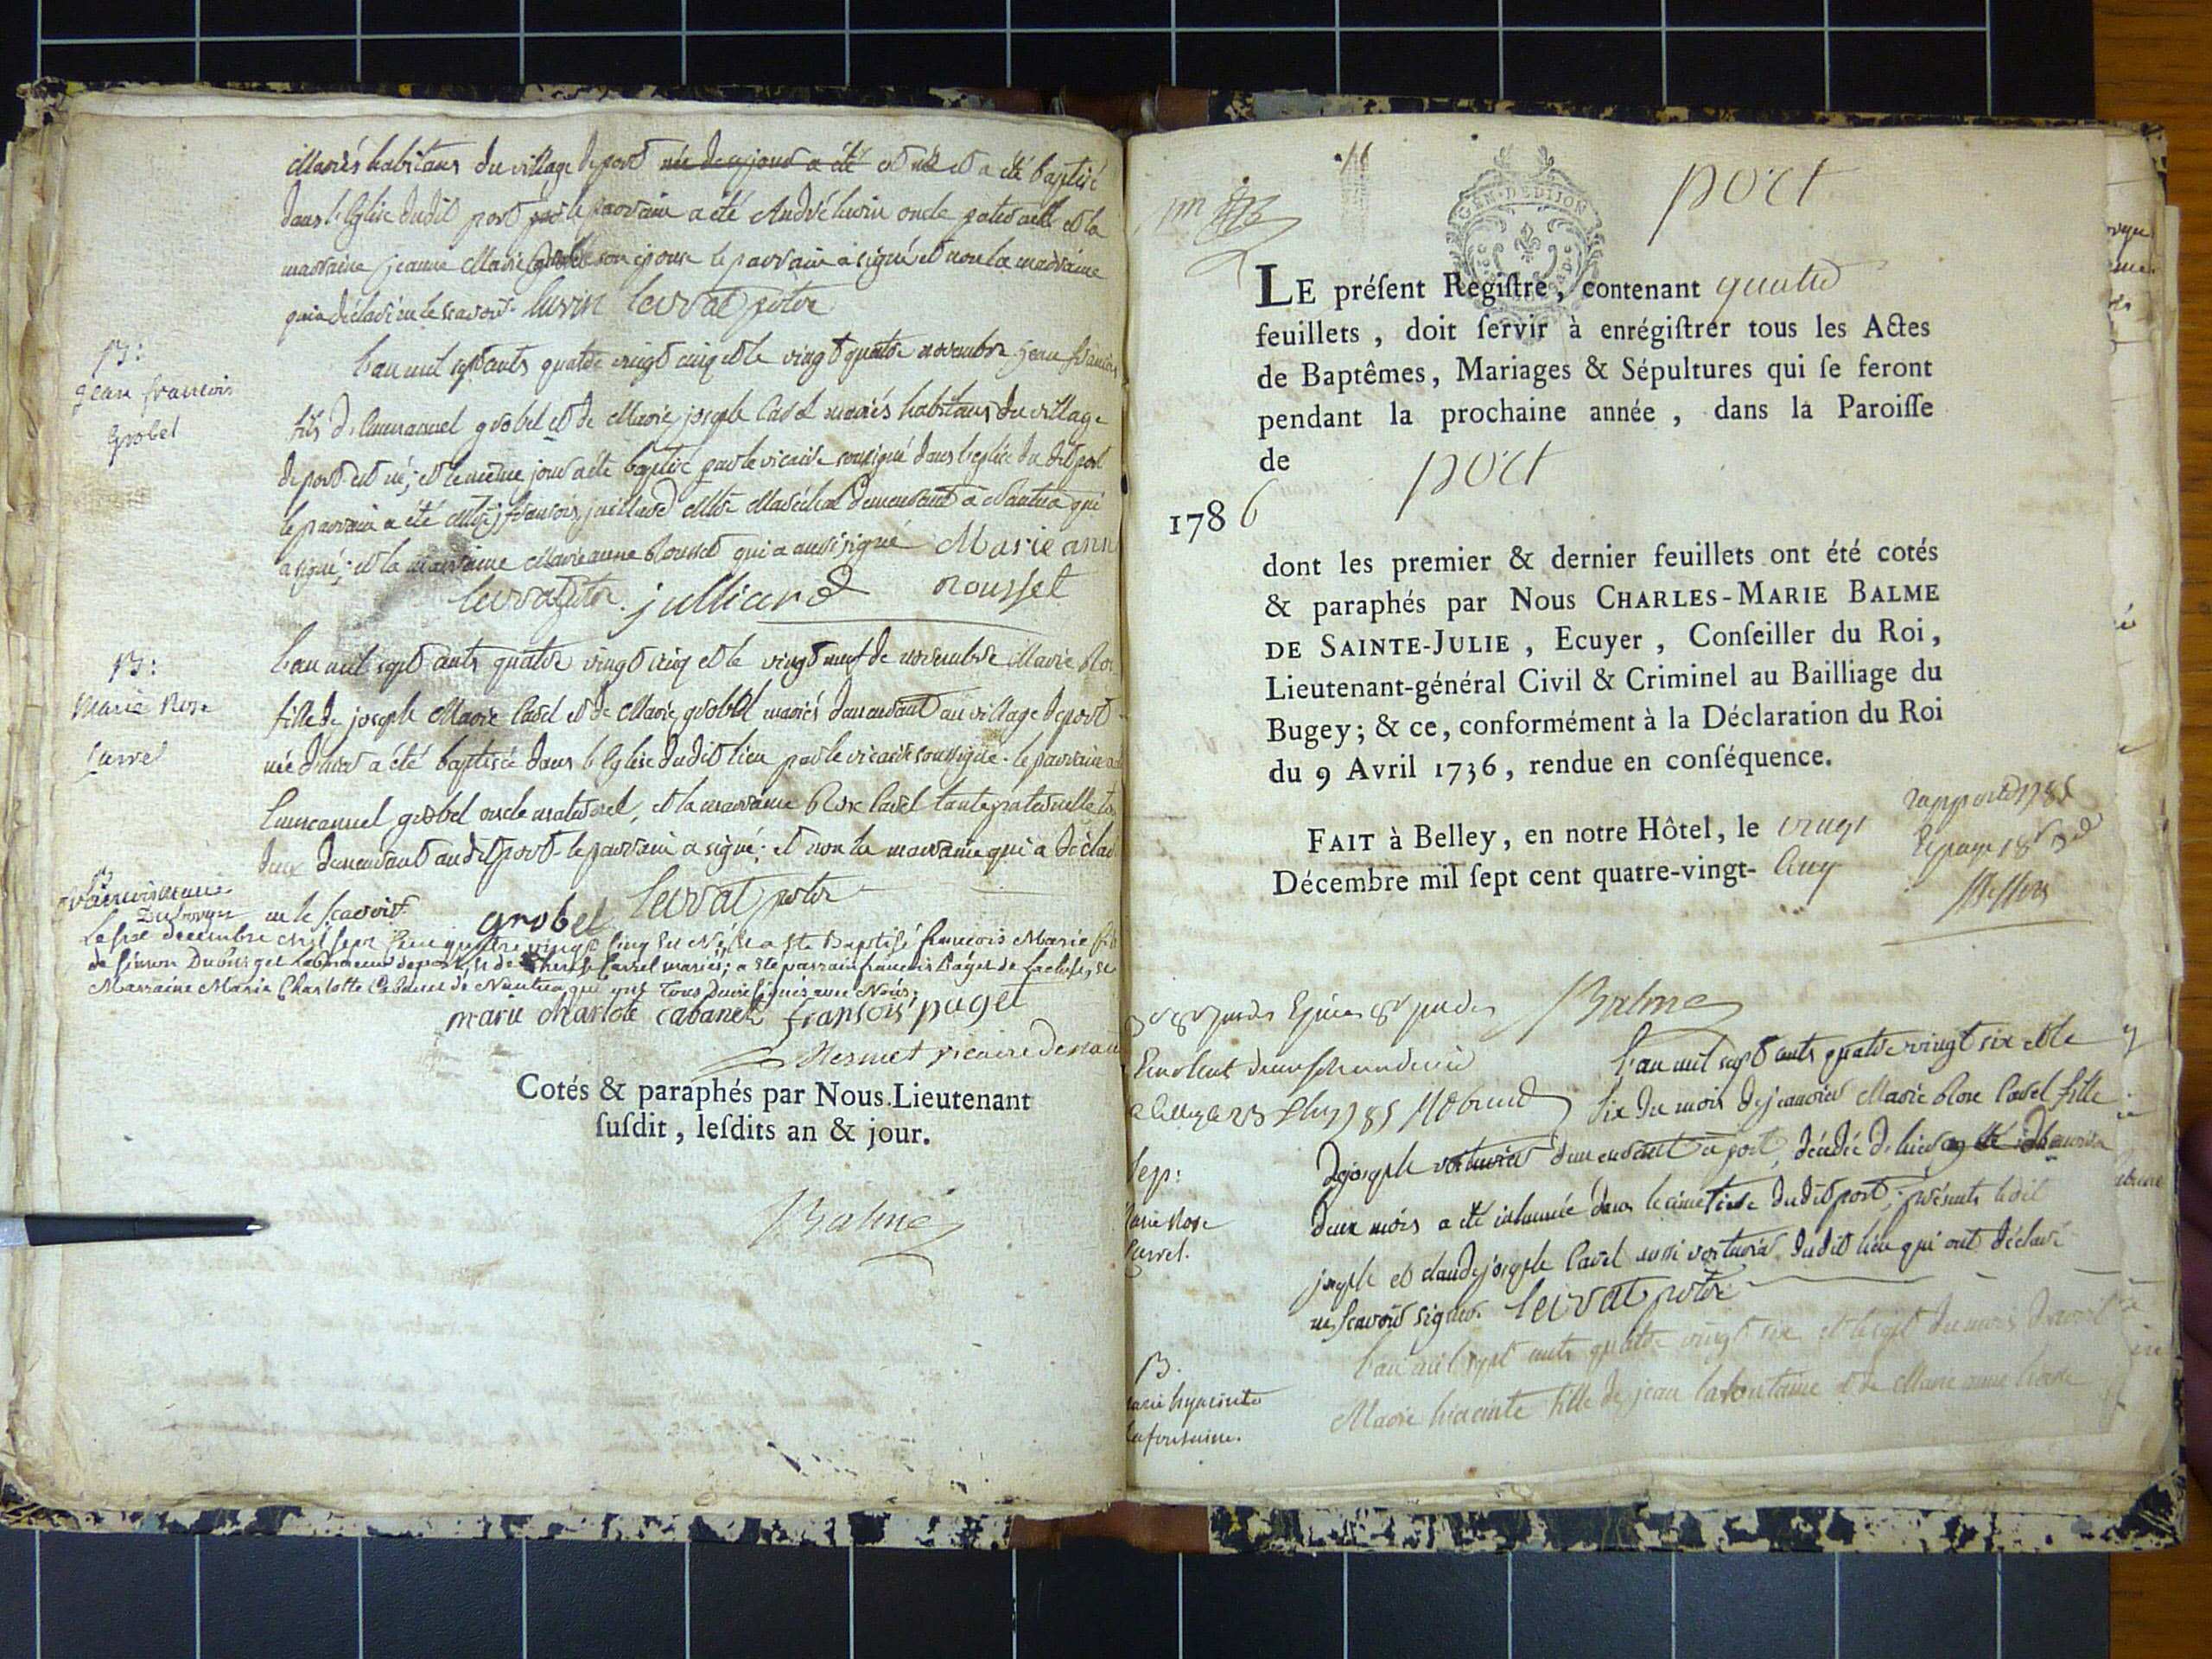 Mariés habitans du village de port née de ce jour a été est né et a été baptisé
dans l'Eglise dudit port par le parrain a été André luvin oncle paternelle et la
marraine jeanne Marie grobel son épouse le parrain a signé et non la marraine
qui a déclaré ne le scavoir. luvin levrat
B:
jean francois
grobel
l'an mil sept cents quatre vingt cinq et le vingt quatre novembre jean francois
fils d'Emmanuel grobel et de Marie joseph Cavel mariés habitans du village
de port est né; et le même jour a été baptisé par le vicaire soussigné dans l'eglise du dit port
le parrain a été françois juillard Mtre Maréchal demeurant a Nantua qui
a signé; et la marraine Marie anne Rousset qui a aussi signé Marie ann
levrat julliard rousset
B:
Marie Rose
Carrel
l'an mil sept cents quatre vingt cinq et le vingt neuf de novembre Marie Rose
fille de joseph Marie Cavel et de Marie grobel mariés demeurant au village de port
née d'hier a été baptisée dans l'Eglise dudit lieu par le vicaire soussigné. le parrain a
Emmanuel grobel oncle maternel, et la marraine Rose Cavel tante paternelle tous
deux demeurant audit port. le parrain a signé; et non la marraine qui a déclaré
ne le scavoir. grobel levrat
B
francois marie
Le six decembre mil sept Cent quatre vingt Cinq Est Né, Et a Ete Baptisé francois Marie fils
de simon Duburget Laboureur de port, et de therese Carrel mariés; a Ete parrain francois Paget de Lacluse, et
Marraine Marie Charlotte Cabanet de Nantua qui ont Tous Deux signés avec Nous;
marie charlote cabanet fransois paget
Mesmet vicaire de nan
Cotés & paraphés par Nous Lieutenant
susdit, lesdits an & jour.
Balme
port
GEN. DE DIJON
LE présent Registre, contenant quatre
feuillets, doit servir à enrégistrer tous les Actes
de Baptêmes, Mariages & Sépultures qui se feront
pendant la prochaine année, dans la Paroisse
de port
1786
dont les premier & dernier feuillets ont été cotés
& paraphés par Nous CHARLES-MARIE BALME
DE SAINTE-JULIE, Ecuyer, Conseiller du Roi,
Lieutenant-général Civil & Criminel au Bailliage du
Bugey; & ce, conformément à la Déclaration du Roi
du 9 Avril 1736, rendue en conséquence.
FAIT à Belley, en notre Hôtel, le vingt
Décembre mil sept cent quatre-vingt- Cinq
Balme
l'an mil sept cents quatre vingt six et le
six du mois de janvier Marie Rose Cavel fille
Sep:
Marie Rose
Carrel.
de joseph voiturier demeurant a port, décédée d'hier
deux mois a été inhumée dans le cimetiere dudit port; présents ledit
joseph et claude joseph Cavel aussi voiturier dudit lieu qui ont déclaré
ne scavoir signer. levrat
B.
marie hyacinte
lafontaine.
l'an mil sept cents quatre vingt six et le sept du mois d'avril
Marie hiacinte fille de jean lafontaine et de Marie anne